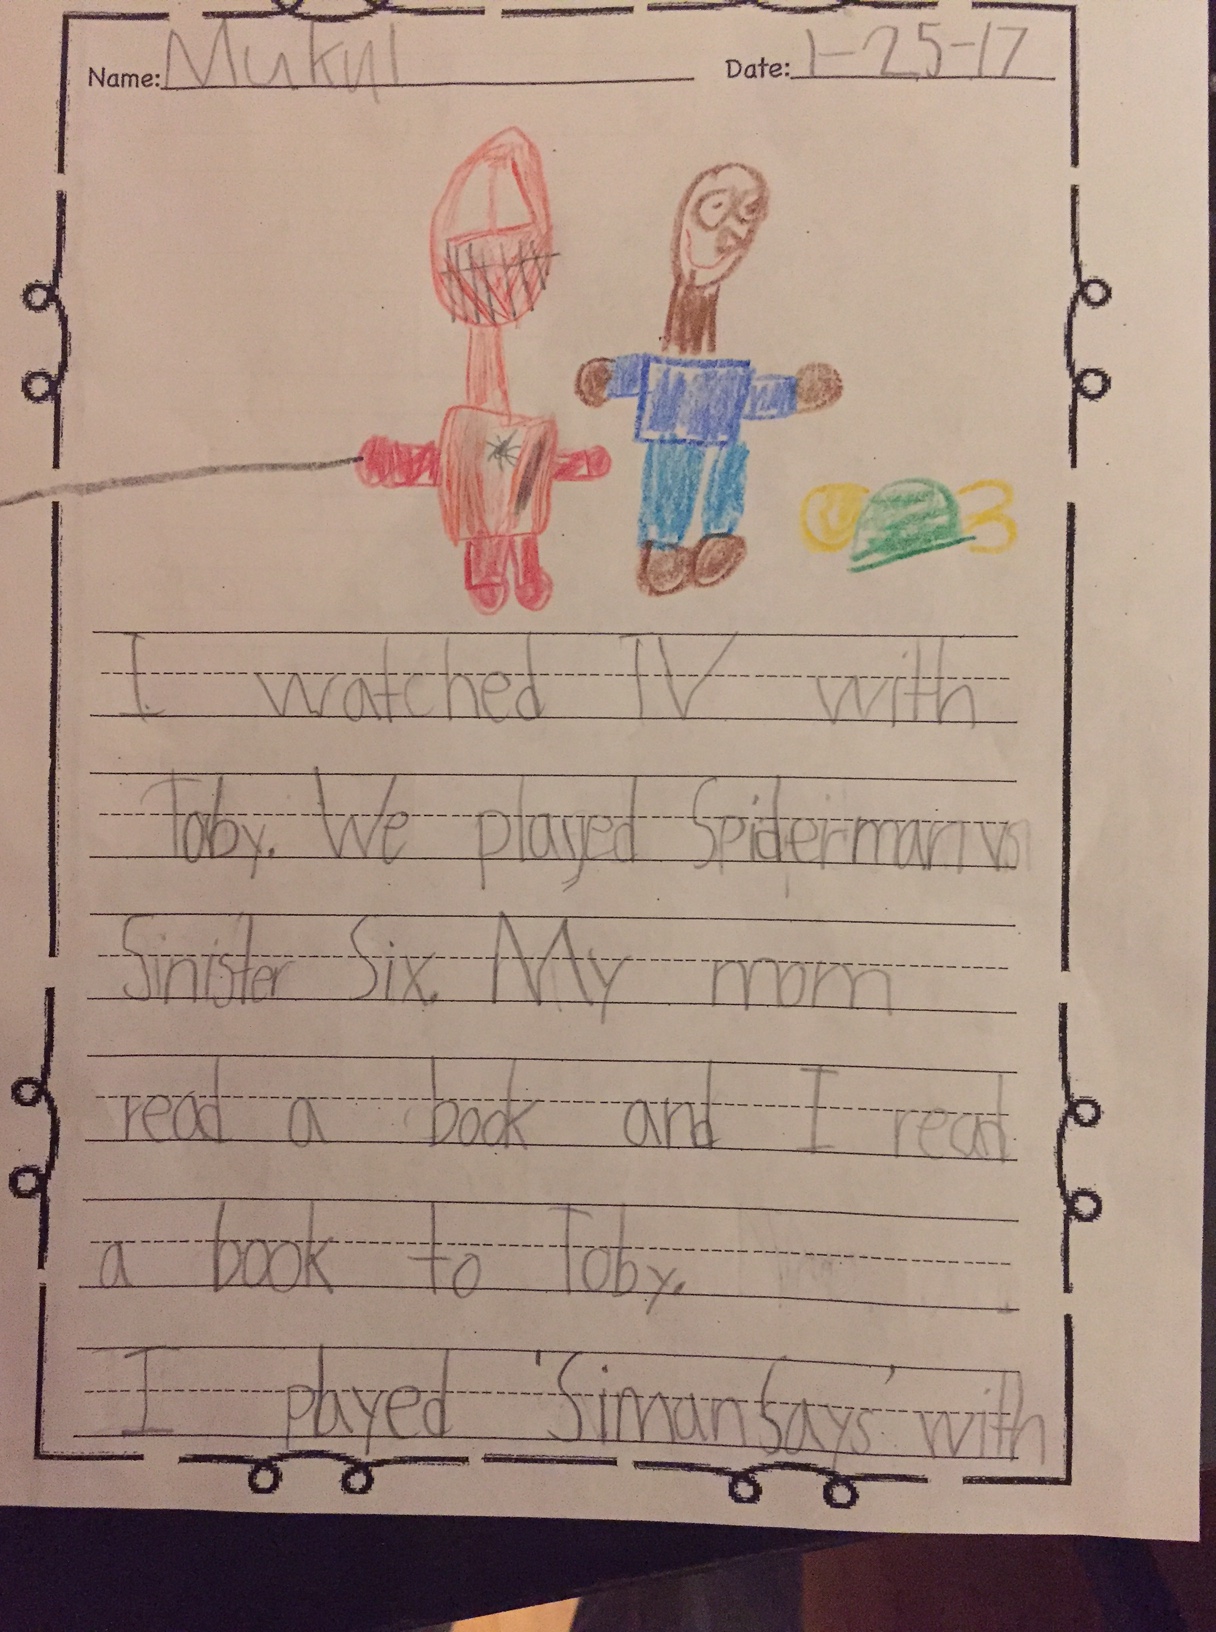 Name: Mukul Date: 1-25-17
I watched TV with
Toby. We played Spiderman vs
Sinister Six. My mom
read a book and I read
a book to Toby.
I played 'Siman Says' with